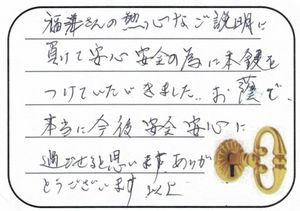 福澤さんの熱心なご説明に
負けて安心安全の為に本鍵を
つけていただきました。お蔭で、
本当に今後安全安心に
過ごせると思いますありが
とうございます 以上